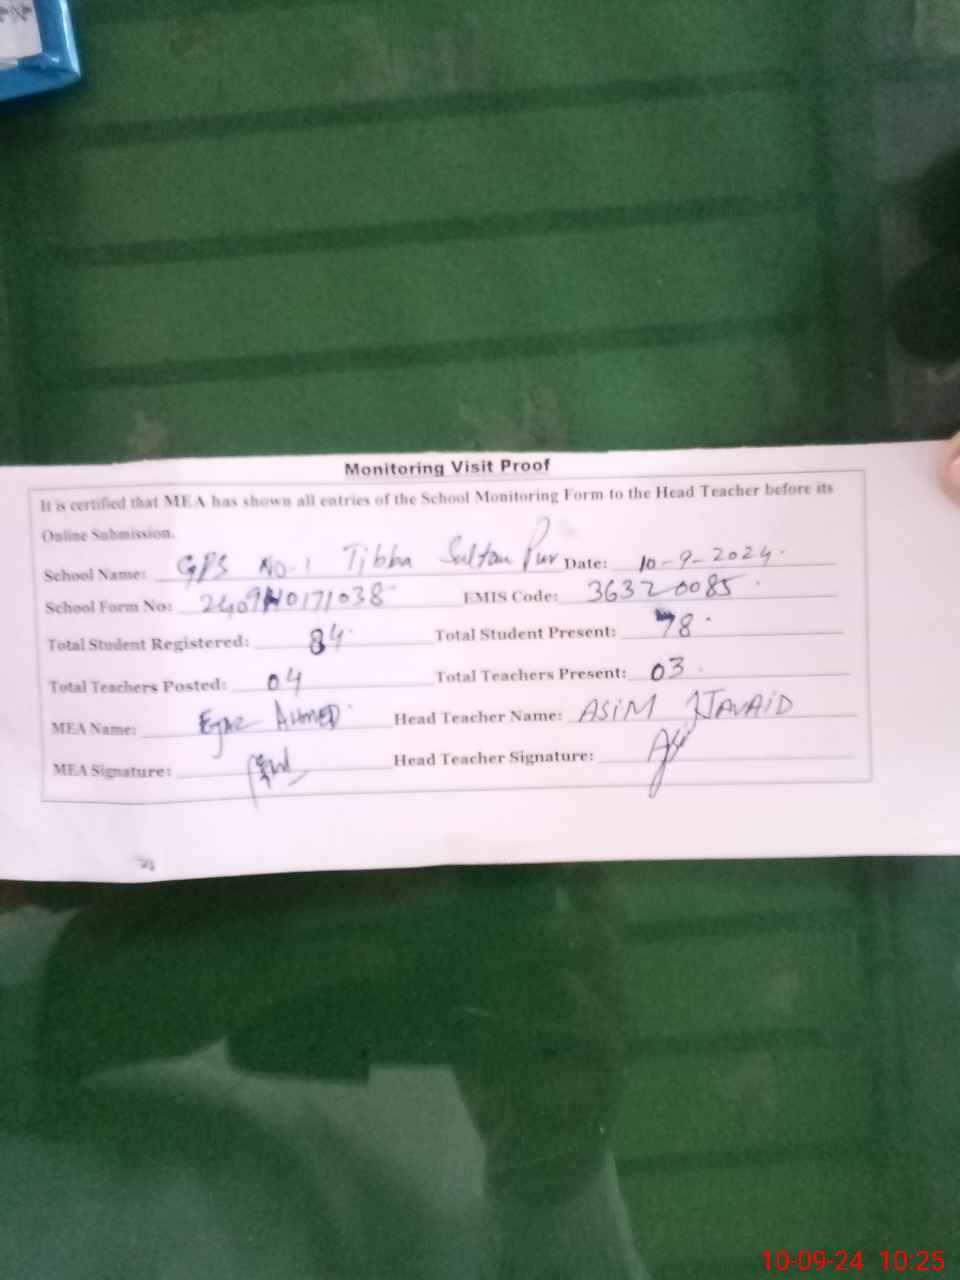 Monitoring Visit Proof
It is certified that MEA has shown all entries of the School Monitoring Form to the Head Teacher before its
Online Submission.
School Name: GPS No-1 Tibba Sultan Pur Date: 10-9-2024.
School Form No: EMIS Code: 36320085.
Total Student Registered: 84. Total Student Present: 78.
Total Teachers Posted: 04 Total Teachers Present: 03.
MEA Name: Ejaz AHMED. Head Teacher Name: ASiM JAVAiD
MEA Signature: Head Teacher Signature:
10-09-24 10:25